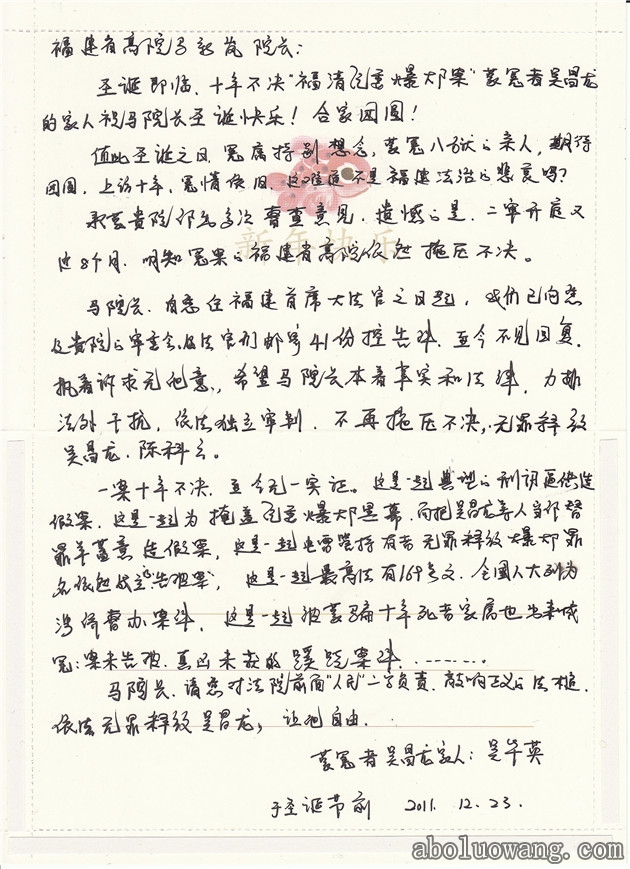 福建省高院马新岚院长:
圣诞即临、十年不决"福清纪委爆炸案"蒙冤者吴昌龙
的家人祝马院长圣诞快乐!合家团圆!
值此圣诞之日、冤属特别想念,蒙冤入狱的亲人,期待
团圆,上访十年、冤情依旧、这难道不是福建法治的悲哀吗?
承蒙贵院 多次 审查意见、遗憾的是、二审开庭又
过8个月、明知冤案的福建省高院依然拖压不决。
马院长、自您任福建首席大法官之日起,我们已向您
及贵院的审委会、及法官们邮寄41份控告件、至今不见回复、
执着诉求无他意、希望马院长本着事实和法律、力排
法外干扰、依法独立审判、不再拖压不决,无罪释放
吴昌龙、陈科云。
一案十年不决、至今无一实证。这是一起典型的刑讯逼供造
假案、这是一起为掩盖纪委爆炸黑幕、而把吴昌龙等人当作替
罪羊蓄意造假案,这是一起 有者无罪释放爆炸罪
名依然成立 告破案,这是一起最高法有164号文、全国人大列为
督办案件、这是一起被蒙骗十年死者家属也出来喊
冤:案未告破、真凶未 的蹊跷案件、………
马院长、请您对法院前面"人民"二字负责、敲响正义的法槌、
依法无罪释放吴昌龙,让他自由、
蒙冤者吴昌龙家人:吴华英
于圣诞节前 2011.12.23.
新年快乐
aboluowang.com